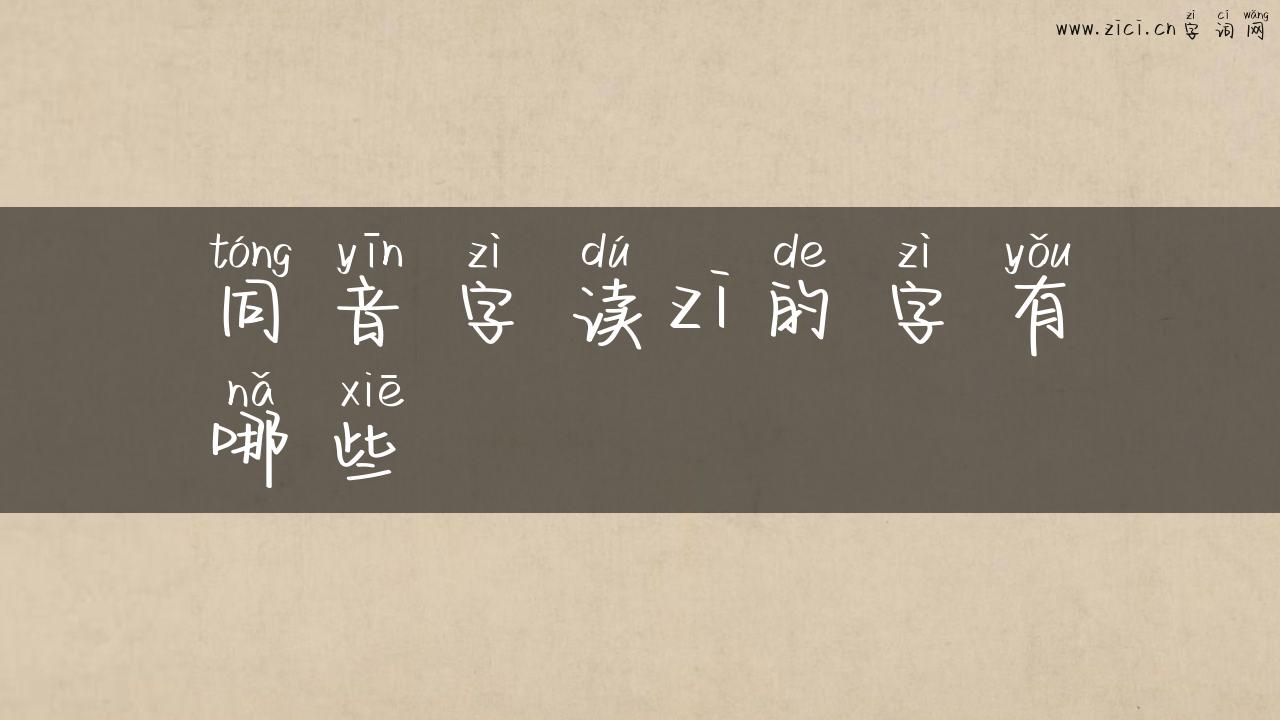 zì cí wǎng
www.zici.cn字词网
tóng yīn zì dú de zì yǒu
同音字读zi的字有
nǎ xiē
哪些